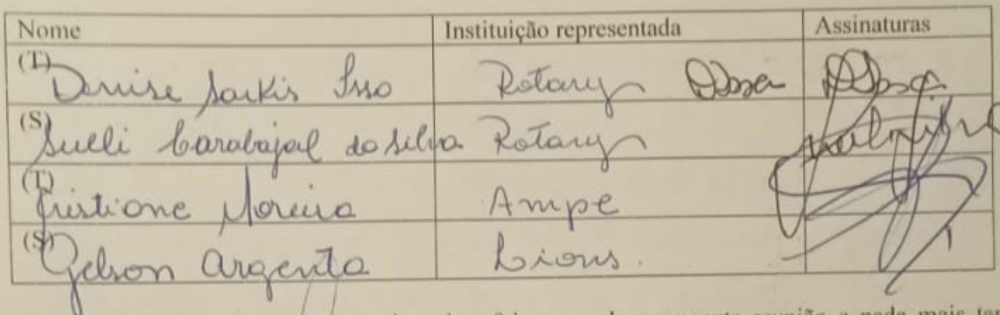 Nome Instituição representada Assinaturas
(T) Denise Sarkis Isso Rotary
(S) Suelli Carabajal da Silva Rotary
(T) Cristione Moreira Ampe
(S) Gelson Argenta Lions.
presente reunião e nada mais